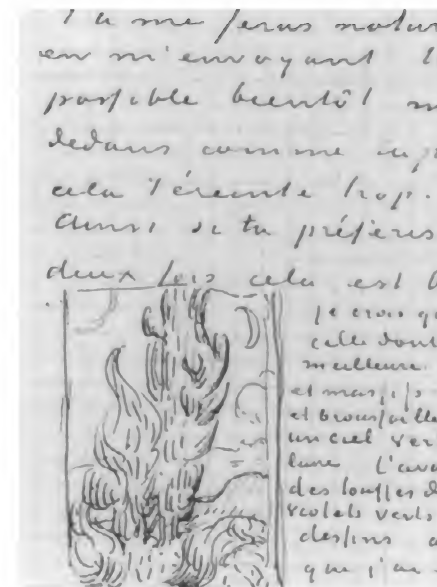 Tu me feras
en m'envoyant
possible bientôt
dedans comme
cela t'éreinte trop.
ainsi si tu préfères
deux fois cela est
je crois
celle dont
meilleure
et massifs
et broussaille
un ciel ver
lune L'ava
des touffes d
violets verts
dessins
que j'ai